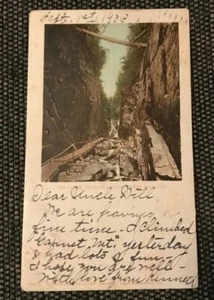 Sept. 1st 1905
Dear Uncle Will
We are having
fine time - I climbed
Mt." yesterday
& had lots of fun.
I hope you are well
With love from